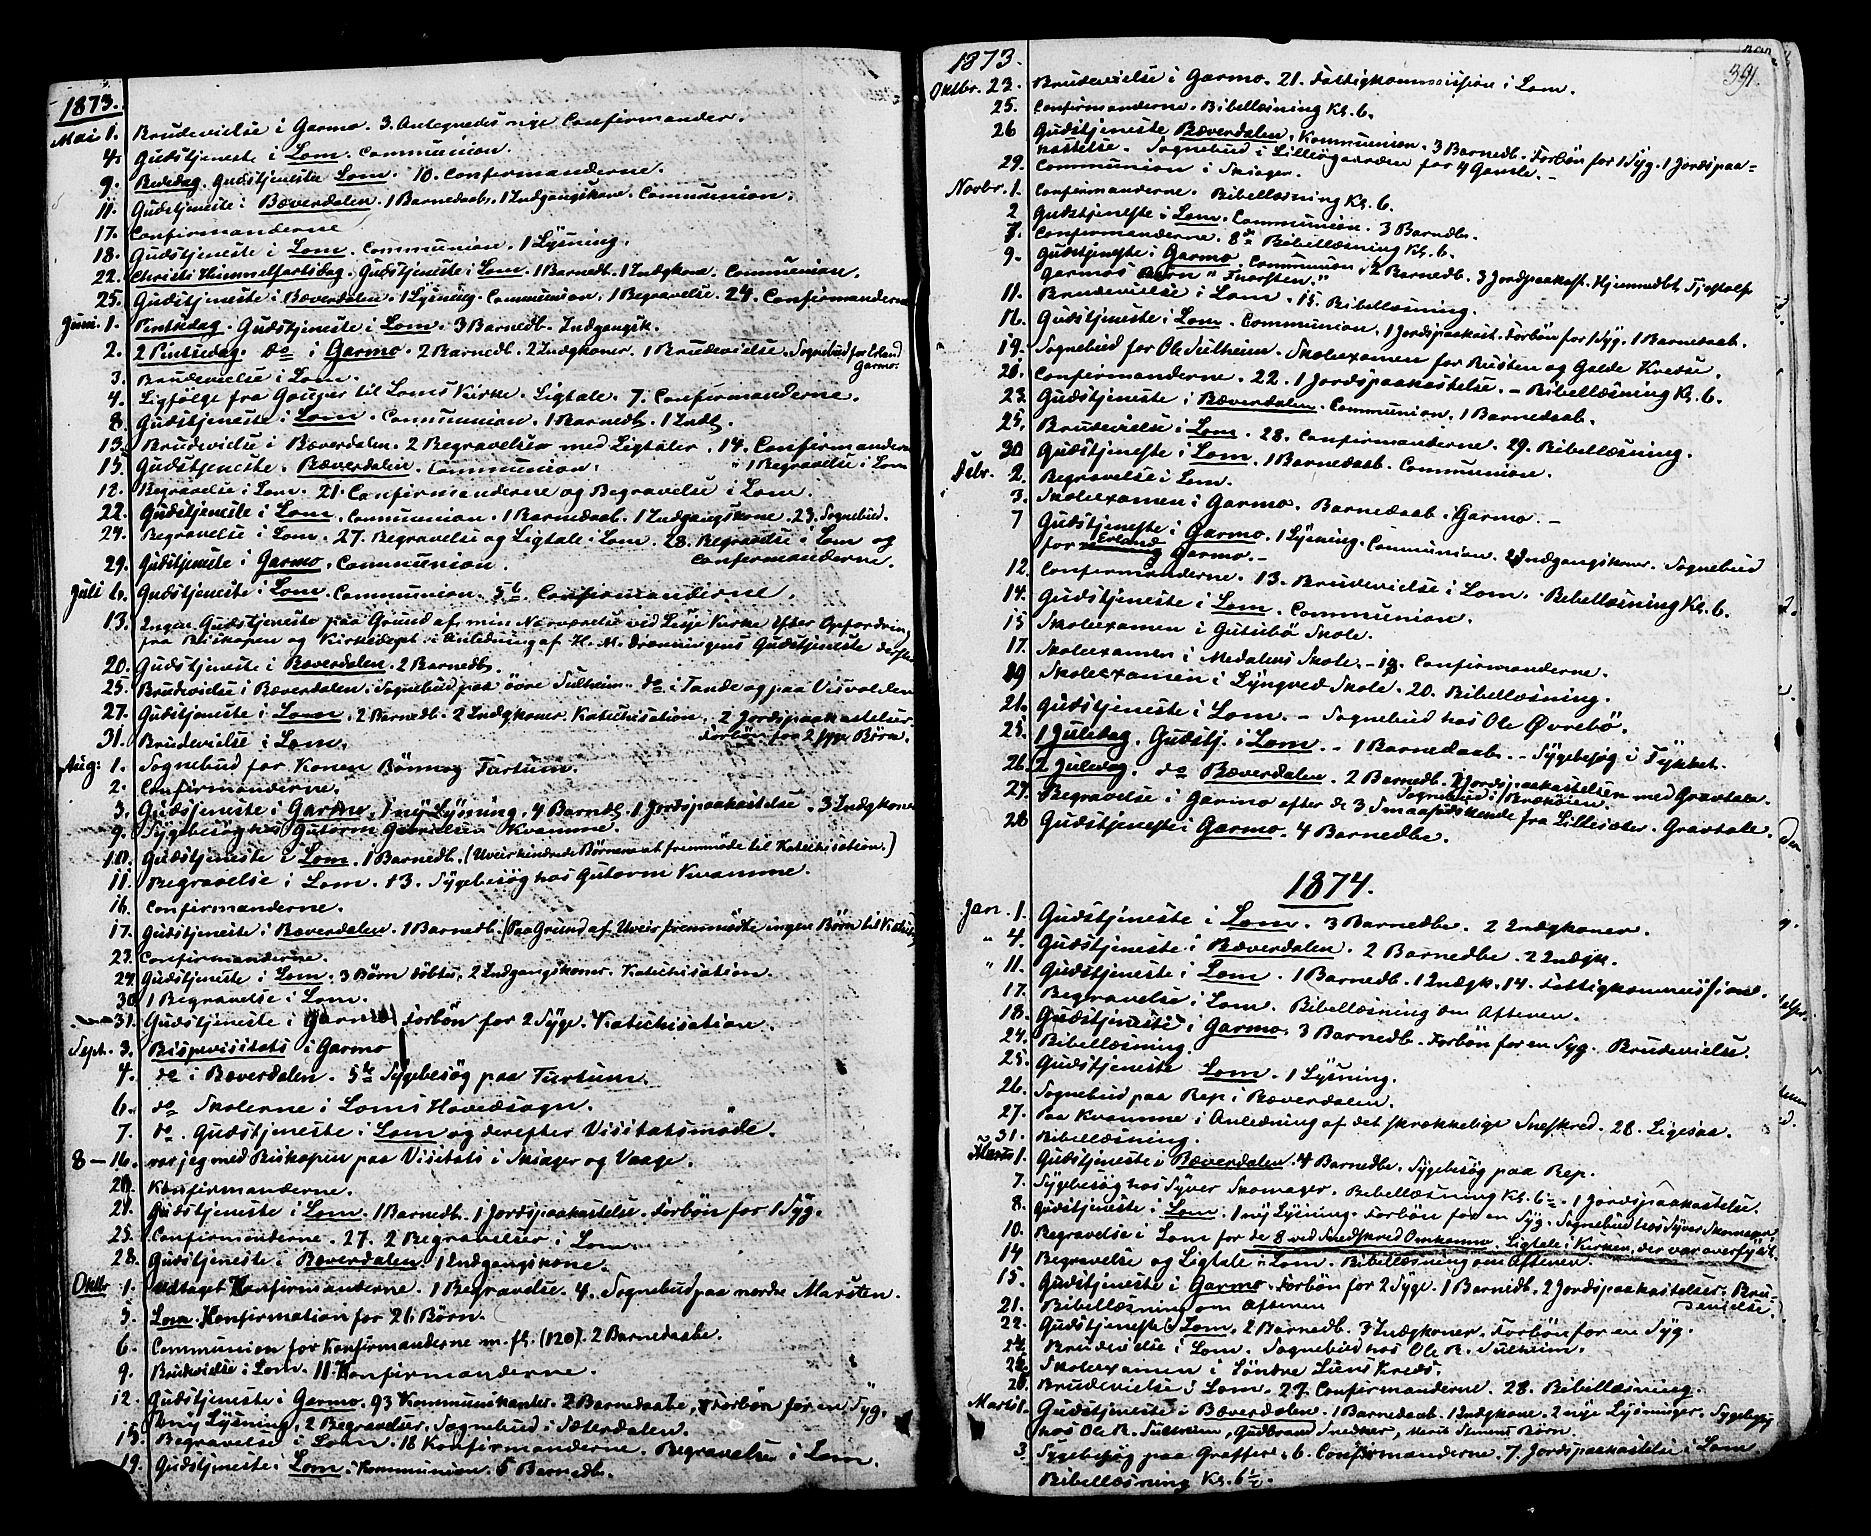 1873.
Mai 1. Brudevielse i Garmo. 3. Antegnedes nye Confirmander.
4. Gudstjeneste i Lom. Communion.
9. Bededag. Gudstjeneste Lom. 10. Confirmanderne.
11. Gudstjeneste i Bæverdalen. 1 Barnedaab, 1 Indgangskone. Communion.
17. Confirmanderne
18. Gudstjeneste i Lom. Communion. 1 Lysning.
22. Christi Himmelfartsdag. Gudstjeneste i Lom. 1 Barnedb. 1 Indgkone. Communion.
25. Gudstjeneste i Bæverdalen. 1 Lysning. Communion. 1 Begravelse. 24. Confirmanderne
Juni. 1. Pintsedag. Gudstjeneste i Lom. 3 Barnedb. Indgangsk.
2. 2 Pintsedag. do i Garmo. 2 Barnedb. 2 Indgkoner. 1 Brudevielse. Sognebud for Erland Garmo.
3. Brudevielse i Lom.
4. Ligfølge fra Gaupar til Loms Kirke. Ligtale. 7. Confirmanderne.
8. Gudstjeneste i Lom. Communion. 1 Barnedb. 1 Indl.
13. Brudevielse i Bæverdalen. 2 Begravelse med Ligtaler. 14. Confirmanderne
15. Gudstjeneste. Bæverdalen. Communion. " 1 Begravelse i Lom
18. Begravelse i Lom. 21. Confirmanderne og Begravelse i Lom.
22. Gudstjeneste i Lom. Communion. 1 Barnedaab. 1 Indgangskone. 23. Sognebud.
24. Begravelse i Lom. 27. Begravelse og Ligtale i Lom. 28. Begravelse i Lom og
29. Gudstjeneste i Garmo. Communion. Confirmanderne.
Juli 6. Gudstjeneste i Lom. Communion. 5te Confirmanderne.
13. Ingen Gudstjeneste paa Grund af min Nærværelse ved Lesje Kirke efter Opfordring
fra Biskopen og Kirkedept. i Anledning af H. M. Dronningens Gudstjeneste
20. Gudstjeneste i Bæverdalen. 2 Barnedb.
25. Brudevielse i Bæverdalen. Sognebud paa øvre Sulheim. do i Tande og paa Visvolden
27. Gudstjeneste i Lom. 2 Barnedb. 2 Indgkoner. Katechisation. 2 Jordspaakastelser.
31. Brudevielse i Lom. Forbøn for 2 syge Børn.
Aug: 1. Sognebud for Konen Turtum.
2. Confirmanderne.
3. Gudstjeneste i Garmo. 1 ny Lysning. 4 Barndb. 1 Jordspaakastelse. 3 Indgkoner
9. Sygebesøg hos Gutorm Kvamme.
10. Gudstjeneste i Lom. 1 Barnedb. (Uveir hindrede Børnene at fremmøde til Katechisation.)
11. Begravelse i Lom. 13. Sygebesøg hos Gutorm Kvamme.
16. Confirmanderne.
17. Gudstjeneste i Bæverdalen. 1 Barnedb. (Paa Grund af Uveir fremmødte ingen Børn til
23. Confirmanderne.
24. Gudstjeneste i Lom. 3 Børn døbte. 2 Indgangskoner. Katechisation.
30. 1 Begravelse i Lom.
31. Gudstjeneste i Garmo. Forbøn for 2 Syge. Katechisation.
Sept. 3. Bispevisitats i Garmo
4. do i Bæverdalen. 5te Sygebesøg paa Turtum.
6. do Skolerne i Loms Hovedsogn.
7. do. Gudstjeneste i Lom og derefter Visitatsmøde.
8 – 16. var jeg med Biskopen paa Visitats i Skiager og Vaage.
20. Konfirmanderne.
21. Gudstjeneste i Lom. 1 Barnedb. 1 Jordspaakastelse. Forbøn for 1 Syg.
25. Confirmanderne. 27. 2 Begravelser i Lom.
28. Gudstjeneste i Bæverdalen. 1 Indgangskone.
Oktb 1. Konfirmanderne. 1 Begravelse. 4. Sognebud paa nordre Marsten.
5. Lom. Konfirmation for 26 Børn.
6. Communion for Konfirmanderne m. fl. (120). 2 Barnedaabe.
9. Brudevielse i Lom. 11. Konfirmanderne.
12. Gudstjeneste i Garmo. 93 Kommunikanter. 2 Barnedaabe. Forbøn for en Syg.
1 ny Lysning. 2 Begravelser. Sognebud i Sæterdalen.
15. Begravelse i Lom. 18 Konfirmanderne. Begravelse i Lom.
19. Gudstjeneste i Lom. Kommunion. 5 Barnedb.
1873.
391.
Oktbr. 23. Brudevielse i Garmo. 21. Fattigkommission i Lom.
25. Confirmanderne. Bibellæsning Kl. 6.
26 Gudstjeneste Bæverdalen. Kommunion. 3 Barnedb. Forbøn for 1 Syg. 1 Jordspaa=
kastelse. Sognebud i Lillisøgaarden for 4 Gamle. –
29. Communion i Skiager.
Novbr. 1. Confirmanderne. Bibellæsning Kl. 6.
2 Gudstjeneste i Lom. Communion. 3 Barndb.
7. Confirmanderne. 8de Bibellæsning Kl. 6.
9. Gudstjeneste i Garmo. Communion. 2 Barnedb. 3 Jordspaakast. Hjemmedbt.
Garmos Barn "Thorsten."
11. Brudevielse i Lom. 15. Bibellæsning.
16. Gudstjeneste i Lom. Communion. 1 Jordspaakast. Forbøn for 1 Syg. 1 Barnedaab.
19. Sognebud for Ole Sulheim. Skoleexamen for Rusten og Galde Kredse.
20. Confirmanderne. 22. 1 Jordspaakastelse. – Bibellæsning Kl. 6.
23. Gudstjeneste i Bæverdalen. Communion. 1 Barnedaab.
25. Brudevielse i Lom. 28. Confirmanderne. 29. Bibellæsning.
30 Gudstjeneste i Lom. 1 Barnedaab. Communion.
Debr. 2. Begravelse i Lom.
3. Skoleexamen i Garmo. Barnedaab i Garmo. –
7 Gudstjeneste i Garmo. 1 Lysning. Communion. 2 Indgangskoner. Sognebud
for Erland Garmo. –
12. Confirmanderne. 13. Brudevielse i Lom. Bibellæsning Kl. 6.
14. Gudstjeneste i Lom. Communion.
15 Skoleexamen i Gutubø Skole.
17. Skoleexamen i Medalens Skole. – 18. Confirmanderne.
19 Skoleexamen i Lyngved Skole. 20. Bibellæsning.
21. Gudstjeneste i Lom. – Sognebud hos Ole Øvrebø.
25. 1 Juledag. Gudstj. i Lom. – 1 Barnedaab. – Sygebesøg i Fykket.
26. 2 Juledag. do Bæverdalen. 2 Barnedb. 2 Jordspaakastelser med Gravtale.
Sognebud i
27. Begravelse i Garmo efter de 3 Smaasødskende fra Lillesæter. Gravtale.
28 Gudstjeneste i Garmo. 4 Barnedbe.
1874.
Jan. 1. Gudstjeneste i Lom. 3 Barnedbe. 2 Indgkoner.
" 4. Gudstjeneste i Bæverdalen. 2 Barnedbe. 2 Indgk.
" 11. Gudstjeneste i Lom. 1 Barnedb. 1 Indgk. 14. Fattigkommission.
17. Begravelse i Lom. Bibellæsning om Aftenen.
18. Gudstjeneste i Garmo. 3 Barnedb. Forbøn for en Syg. Brudevielse.
24. Bibellæsning.
25. Gudstjeneste Lom. 1 Lysning.
26. Sognebud paa Rep i Bæverdalen.
27. Paa Kvamme i Anledning af det skrækkelige Sneskred. 28. Ligesaa.
31. Bibellæsning.
1. Gudstjeneste i Bæverdalen. 4 Barnedbe. Sygebesøg paa Rep.
7. Sygebesøg hos Syver Skomager. Bibellæsning Kl. 6. 1 Jordspaakastelse.
8. Gudstjeneste i Lom. 1 ny Lysning. Forbøn for en Syg. Sognebud hos Syver Skomager.
10. Begravelse i Lom for de 8 ved Sneskred Omkomne. Ligtale i Kirken, der var overfyldt.
14 Begravelse og Ligtale i Lom. Bibellæsning om Aftenen.
15. Gudstjeneste i Garmo. Forbøn for 2 Syge. 1 Barnedb. 2 Jordspaakastelser. Bru=
devielse.
21. Bibellæsning om Aftenen
22. Gudstjeneste i Lom. 2 Barnedb. 3 Indgkoner. Forbøn for en Syg.
24. Brudevielse i Lom. Sognebud hos Ole R. Sulheim.
Skoleexamen i Søndre Liens Kreds.
26. Brudevielse i Lom. 27. Confirmanderne. 28. Bibellæsning.
Marts 1. Gudstjeneste i Bæverdalen. 1 Barnedaab. 1 Indgkone. 2 nye Lysninger. Sygebesøg
hos Ole R. Sulheim, Gudbrand Snedker, Børn.
3. Sygebesøg paa Graffer. 6. Confirmanderne. 7. Jordspaakastelse i Lom
Bibellæsning Kl. 6½.